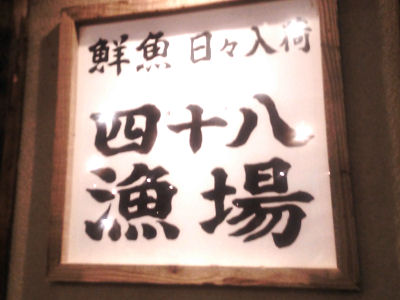 鮮魚 日々入荷
四十八
漁場